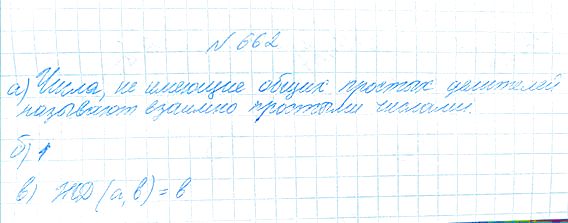 № 662
а) Числа, не имеющие общих простых делителей
называют взаимно простыми числами.
б) 1
в) НОД (а, в) = в